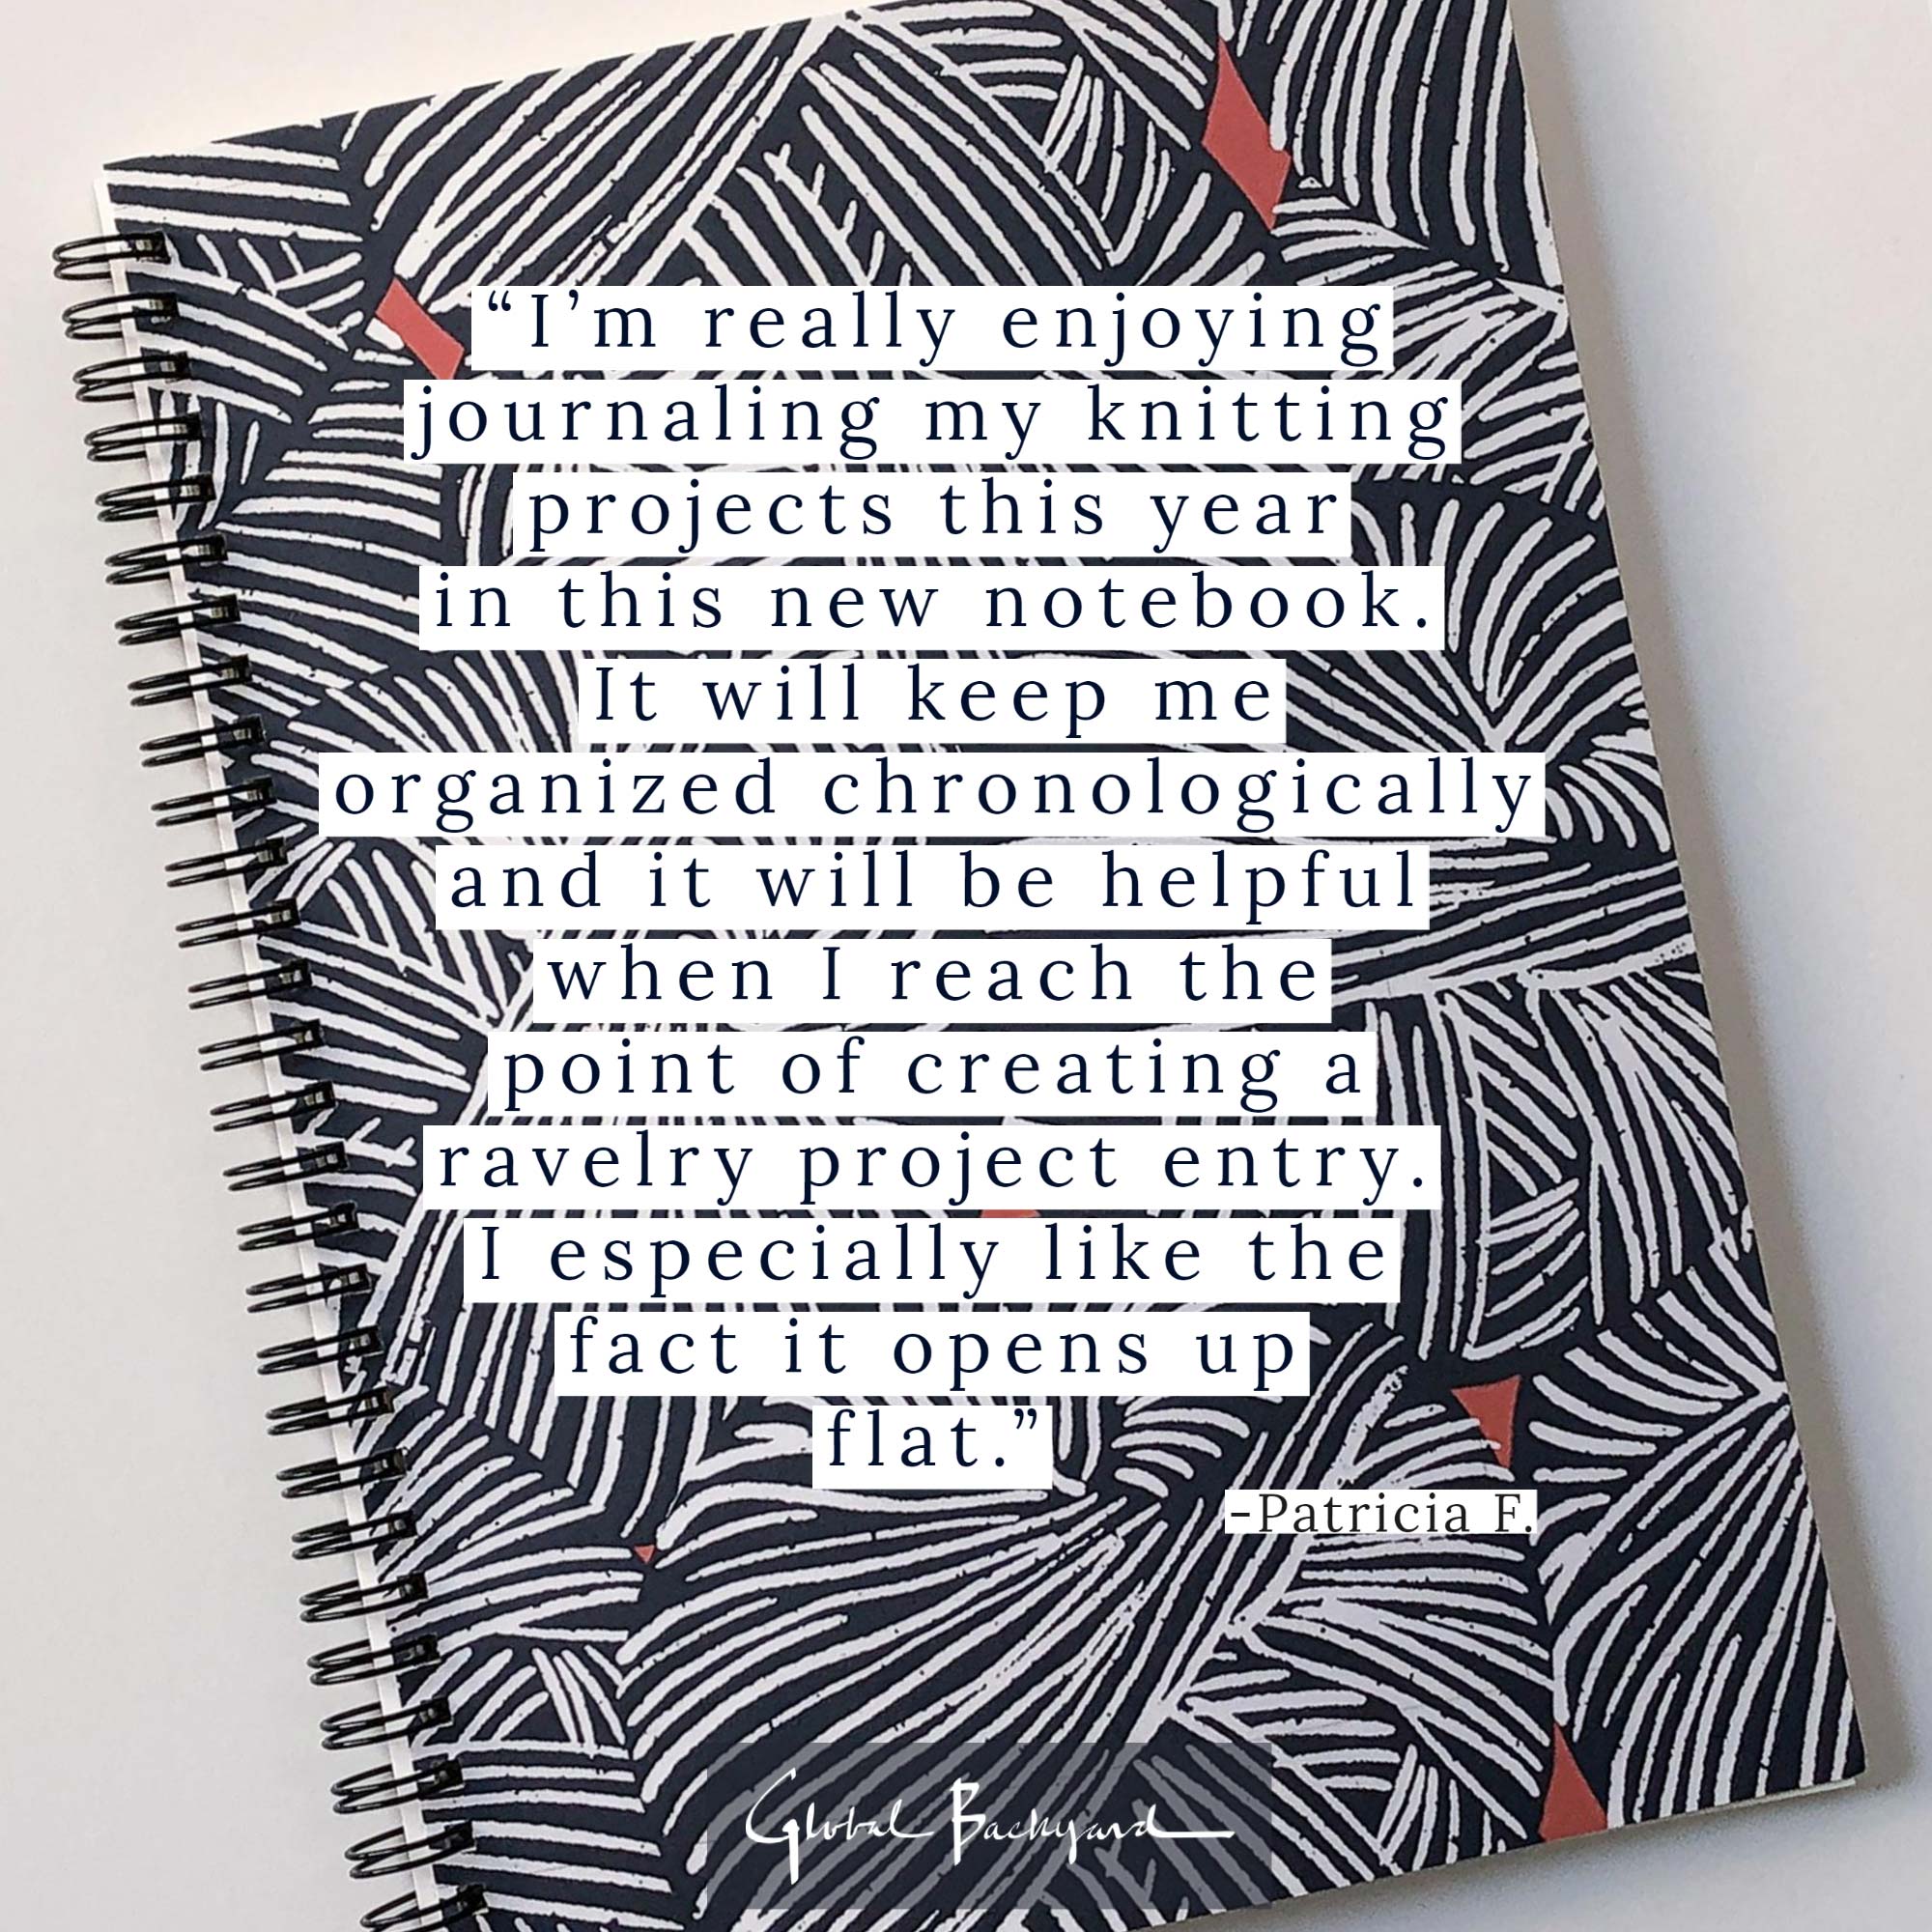 “I’m really enjoying
journaling my knitting
projects this year
in this new notebook.
It will keep me
organized chronologically
and it will be helpful
when I reach the
point of creating a
ravelry project entry.
I especially like the
fact it opens up
flat.”
-Patricia F.
Global Backyard